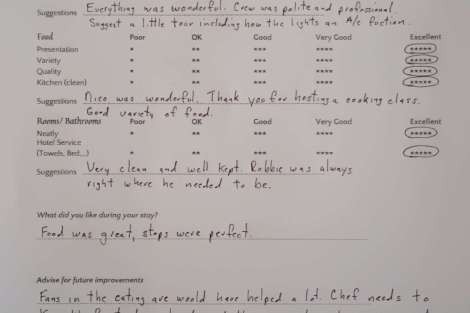 Suggestions Everything was wonderful. Crew was polite and professional.
Suggest a little tour including how the lights an A/c fuction.
Food Poor OK Good Very Good Excellent
Presentation * ** *** **** *****
Variety * ** *** **** *****
Quality * ** *** **** *****
Kitchen (clean) * ** *** **** *****
Suggestions Nico was wonderful. Thank you for hosting a cooking class.
Good variety of food.
Rooms/ Bathrooms Poor OK Good Very Good Excellent
Neatly * ** *** **** *****
Hotel Service
(Towels, Bed...) * ** *** **** *****
Suggestions Very clean and well kept. Robbie was always
right where he needed to be.
What did you like during your stay?
Food was great, stops were perfect.
Advise for future improvements
Fans in the eating are would have helped a lot. Chef needs to